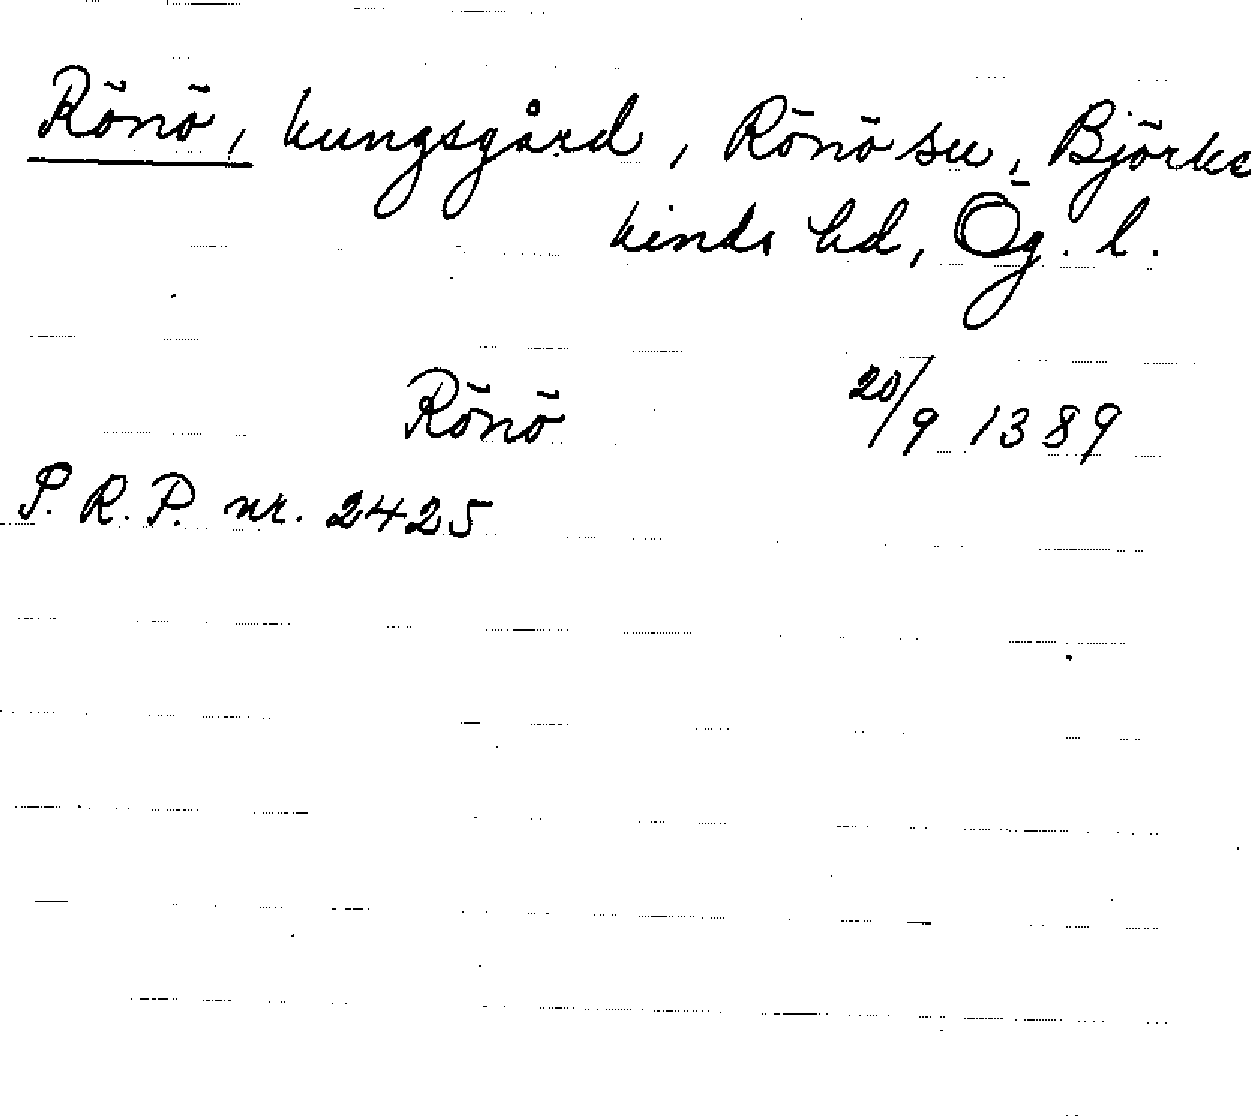 Rönö, kungsgård, Rönö su, Björke
kinds hd, Ög. l.
Rönö 20/9 1389
P. R. P. nr. 2425